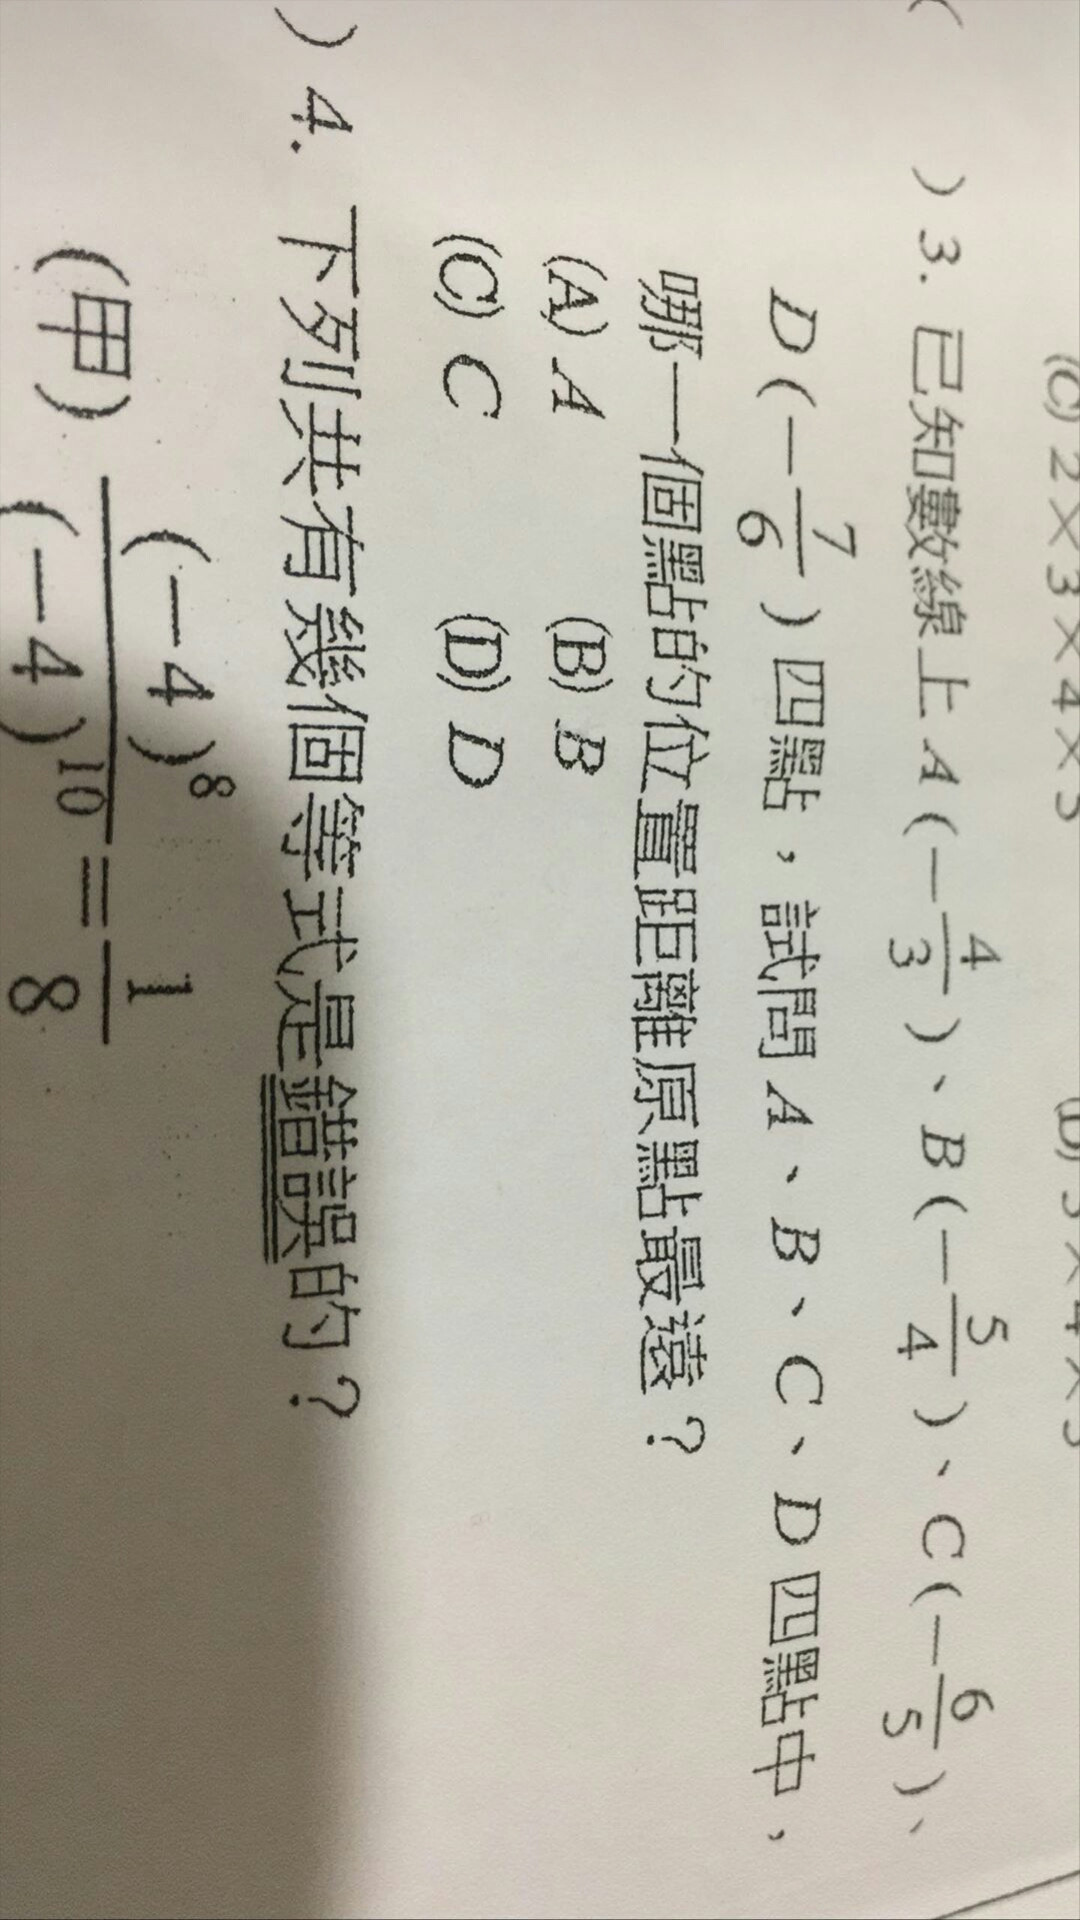 (C) 2×3×4×5 (D) 3×4×5
( ) 3. 已知數線上 A(-4/3)、B(-5/4)、C(-6/5)、
D(-7/6)四點，試問 A、B、C、D 四點中，
哪一個點的位置距離原點最遠？
(A) A (B) B
(C) C (D) D
) 4. 下列共有幾個等式是錯誤的？
(甲) (-4)⁸/(-4)¹⁰=1/8